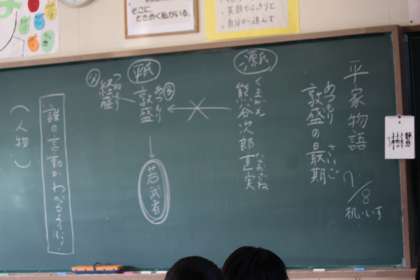 平家物語
7/8
机・いす
あつもり さいご
敦盛の最期
源氏
くまがえ なおざね
熊谷次郎直実
平氏
あつもり
敦盛
若武者
つねもり
経盛
誰の言動かわかるように!
(人物)
そこに、
ときめく私がいる。